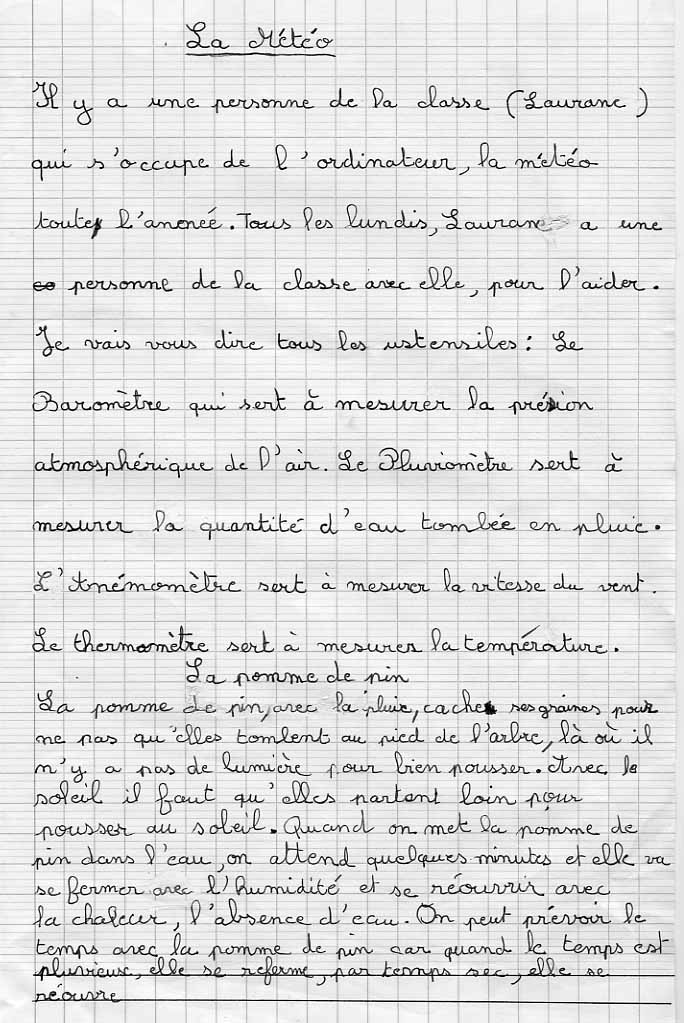 La Météo
Il y a une personne de la classe (Laurane)
qui s'occupe de l'ordinateur, la météo
toute l'anenéé. Tous les lundis, Laurane a une
personne de la classe avec elle, pour l'aider.
Je vais vous dire tous les ustensiles : Le
Baromètre qui sert à mesurer la présion
atmosphérique de l'air. Le Pluviomètre sert à
mesurer la quantité d'eau tombée en pluie.
L'Anémomètre sert à mesurer la vitesse du vent.
Le thermomètre sert à mesurer la température.
La pomme de pin
La pomme de pin, avec la pluie, cache ses graines pour
ne pas qu'elles tombent au pied de l'arbre, là où il
n'y a pas de lumière pour bien pousser. Avec le
soleil il faut qu'elles partent loin pour
pousser au soleil. Quand on met la pomme de
pin dans l'eau, on attend quelques minutes et elle va
se fermer avec l'humidité et se réouvrir avec
la chaleur, l'absence d'eau. On peut prévoir le
temps avec la pomme de pin car quand le temps est
pluvieux, elle se referme, par temps sec, elle se
réouvre